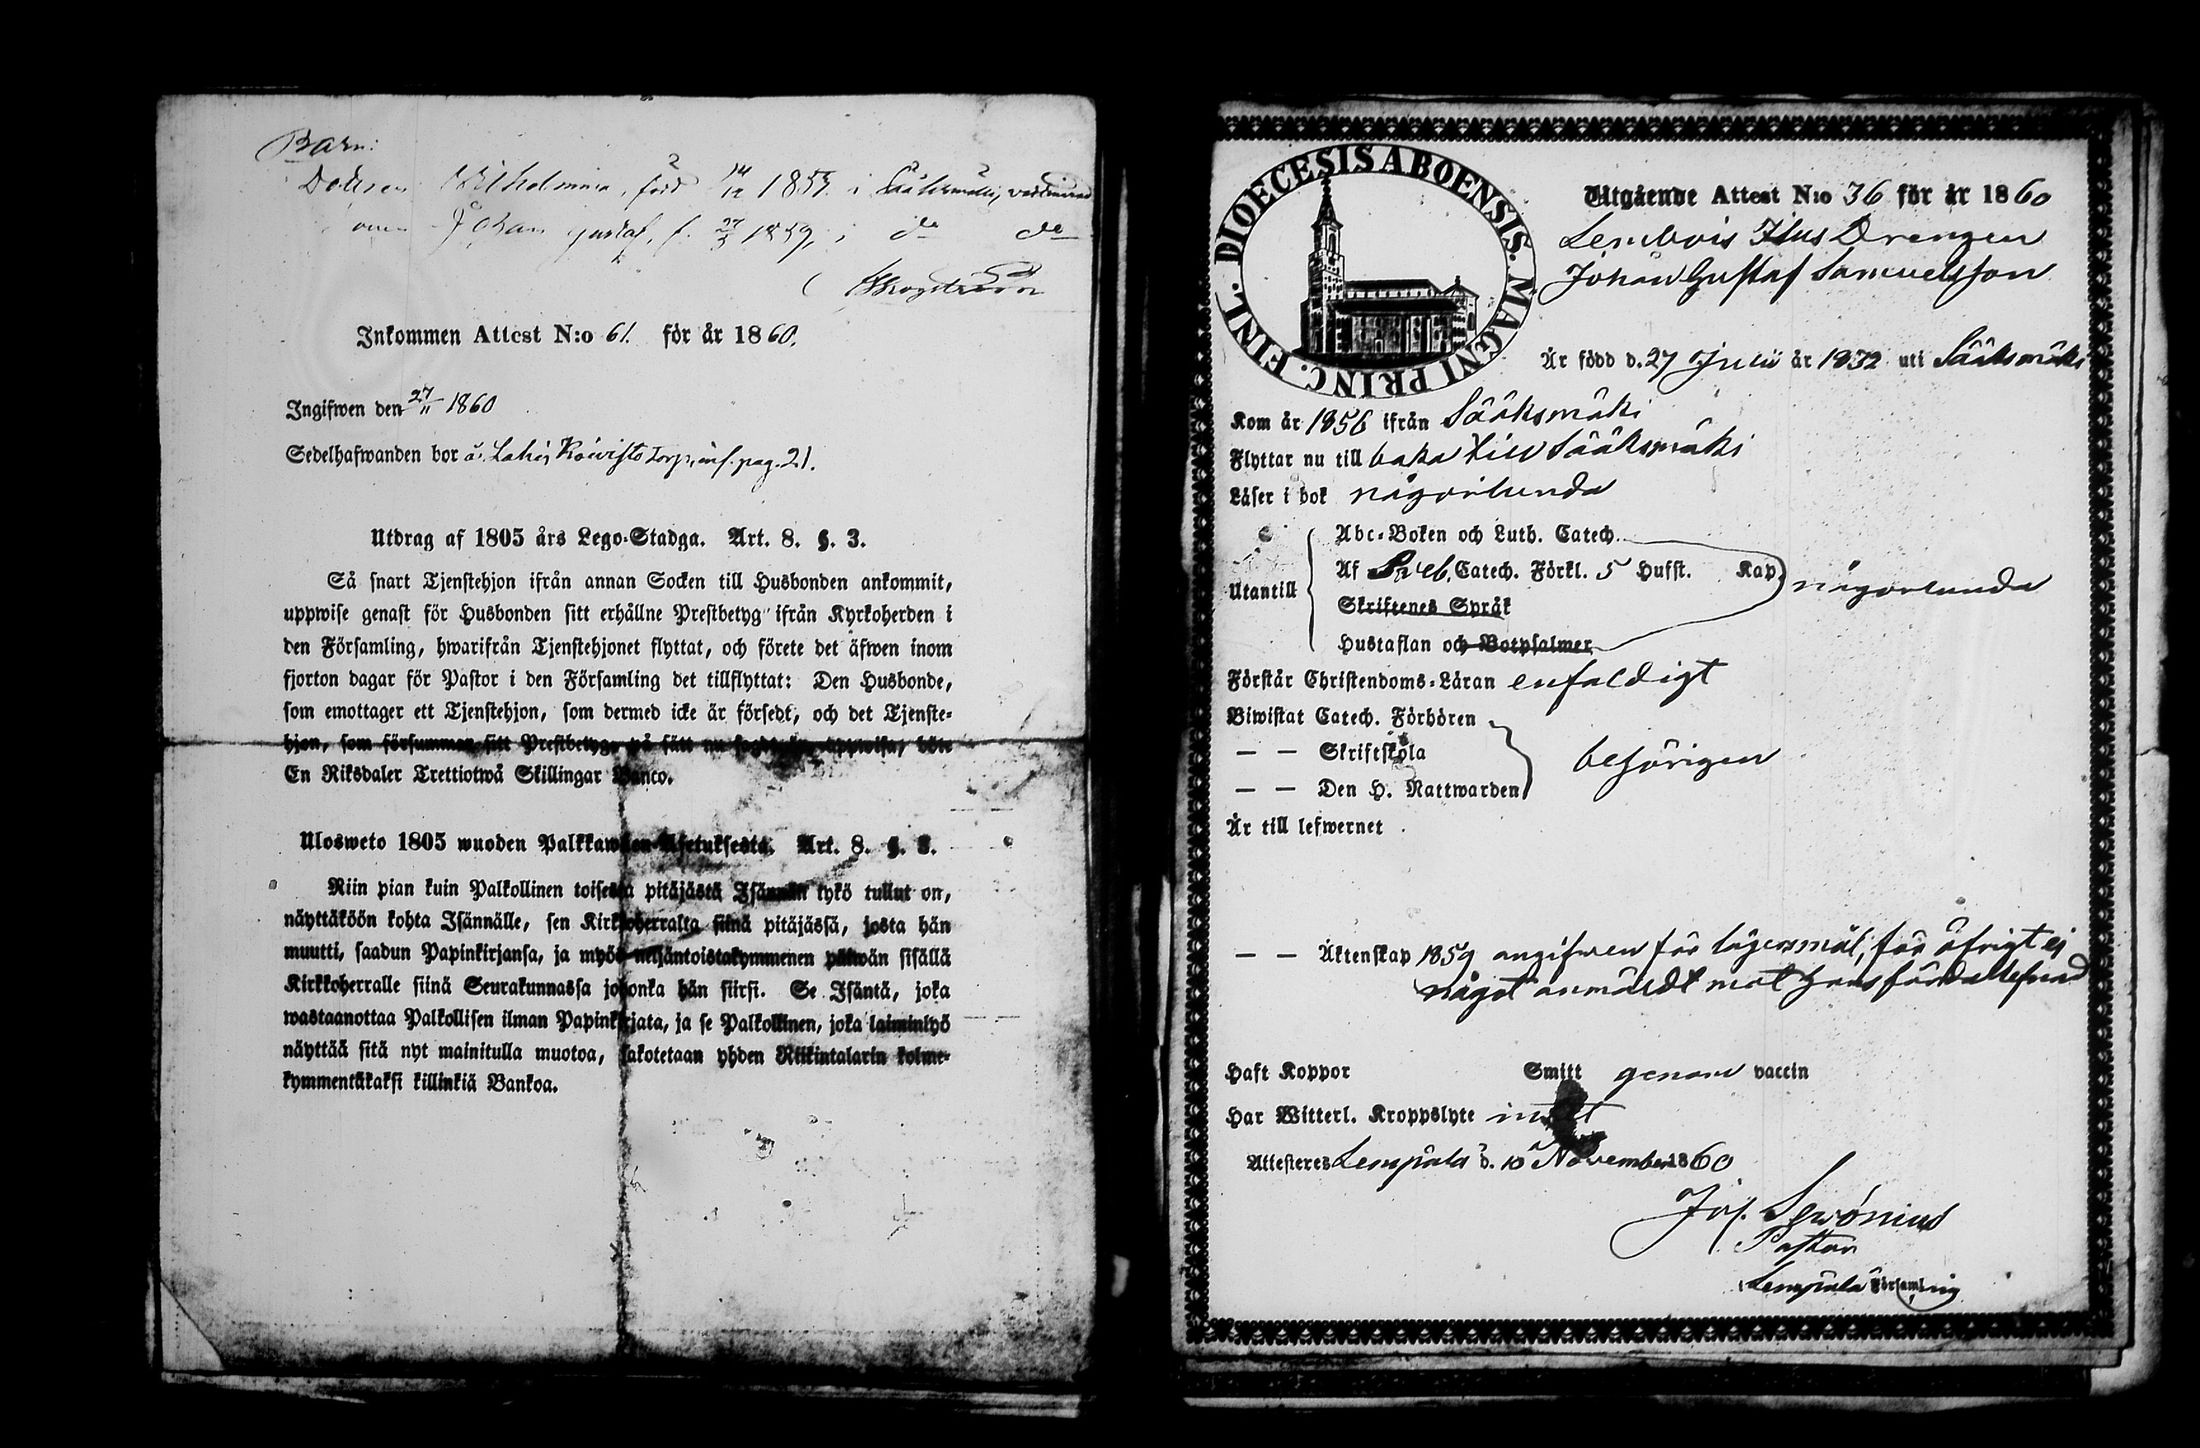 Barn:
Dottren Wilhelmina, född 14/12 1857. i Sääksmäki, vaccinerad
Johan Gustaf, f. 27/3 1859, i do do
Inkommen Attest N:o 61. för år 1860.
Ingifwen den 27/11 1860
Sedelhafwanden bor å Lahis Koivisto Torp, inf. pag. 21.
Utdrag af 1805 års Lego-Stadga. Art. 8. §. 3.
Så snart Tjenstehjon ifrån annan Socken till Husbonden ankommit,
uppwise genast för Husbonden sitt erhållne Prestbetyg ifrån Kyrkoherden i
den Församling, hwarifrån Tjenstehjonet flyttat, och förete det äfwen inom
fjorton dagar för Pastor i den Församling det tillflyttat: Den Husbonde,
som emottager ett Tjenstehjon, som dermed icke är försedt, och det Tjenste-
hjon, som försummar sitt Prestbetyg, på sätt nu sagdt är, uppwisa, böte
En Riksdaler Trettiotwå Skillingar Banco.
Ulosweto 1805 wuoden Palkkawäen-Asetuksesta. Art. 8. §. 3.
Niin pian kuin Palkollinen toisesta pitäjästä Isännän tykö tullut on,
näyttäköön kohta Isännälle, sen Kirkkoherralta siinä pitäjässä, josta hän
muutti, saadun Papinkirjansa, ja myös neljäntoistakymmenen päiwän sisällä
Kirkkoherralle siinä Seurakunnassa johonka hän siirsi. Se Isäntä, joka
wastaanottaa Palkollisen ilman Papinkirjata, ja se Palkollinen, joka laiminlyö
näyttää sitä nyt mainitulla muotoa, sakotetaan yhden Riikintalarin kolme-
kymmentäkaksi killinkiä Bankoa.
DIOECESIS ABOENSIS. MAGNI PRINC. FINL.
Utgående Attest N:o 36 för år 1860
Lembois Drengen
Johan Gustaf Samuelsson
Är född d. 27 Julii år 1832 uti Sääksmäki
Kom år 1856 ifrån Sääksmäki
Flyttar nu till baka till Sääksmäki
Läser i bok någorlunda
Utantill
Abc-Boken och Luth. Catech.
Af Sveb. Catech. Förkl. 5 Hufst. Kap. någorlunda
Skriftenes Språk
Hustaflan och Botpsalmer
Förstår Christendoms-Läran enfaldigt
Biwistat Catech. Förhören
— — Skriftskola behörigen
— — Den H. Nattwarden
Är till lefwernet
— — Äktenskap 1859 angifwen för lägersmål, för öfrigt ej
något anmäldt mot hans
Haft Koppor Smitt genom vaccin
Har Witterl. Kroppslyte intet
Attesteres Lempälä d. 10 November 1860
Jos.
Pastor
Lempälä Församling